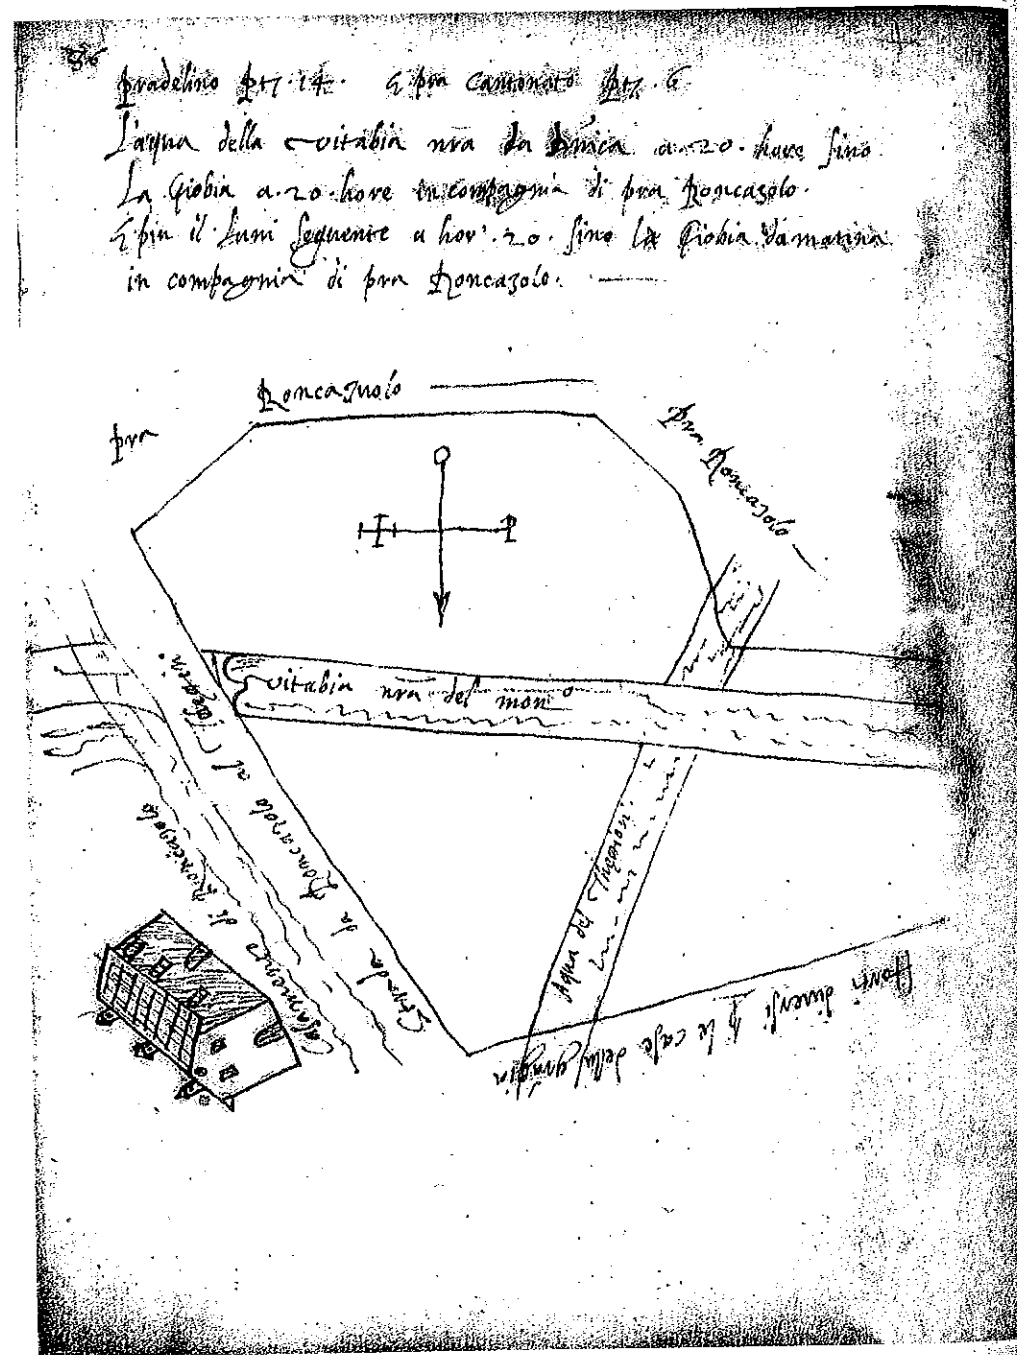 86
Pradelino Ptz. 14. E pra Cantonato Ptz. 6
L'aqua della Vitabia nra da Dnica a 20. hore sino
La Giobia a. 20 hore in compagnia di pra Roncazolo.
E piu il Luni seguente a hor. 20. sino la Giobia da matina
in compagnia di pra Roncazolo.
Pra
Roncazuolo
Pra Roncazolo
Vitabia nra del mon.o
Strada da Roncazolo al
di Roncazolo
Aqua del
Horti diversi
le case della